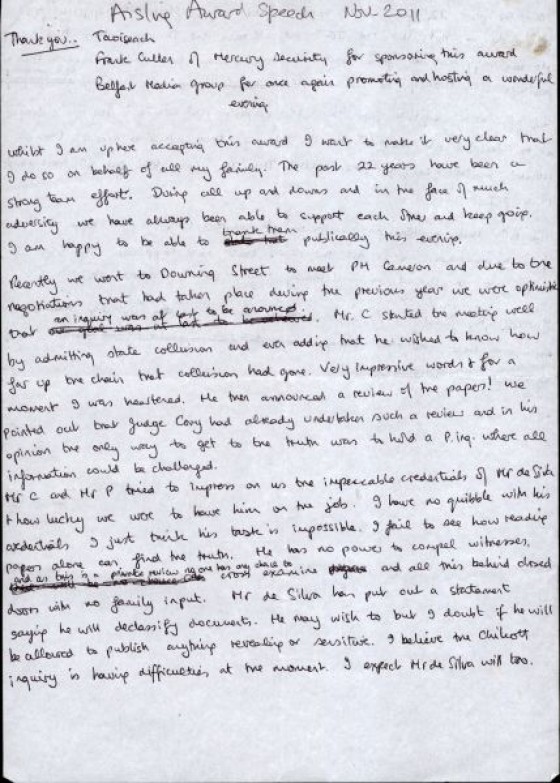 Aisling Award Speech Nov 2011
Thank you.. Taoiseach
Frank Cullen of Mercury Security for sponsoring this award
Belfast Media group for once again promoting and hosting a wonderful
evening
Whilst I am up here accepting this award I want to make it very clear that
I do so on behalf of all my family. The past 22 years have been a
strong team effort. During all up and downs and in the face of much
adversity we have always been able to support each other and keep going.
I am happy to be able to thank them publically this evening.
Recently we went to Downing Street to meet PM Cameron and due to the
negotiations that had taken place during the previous year we were optimistic
that an inquiry was at last to be announced. Mr. C started the meeting well
by admitting state collusion and even adding that he wished to know how
far up the chain that collusion had gone. Very impressive words & for a
moment I was heartened. He then announced a review of the papers! We
pointed out that Judge Cory had already undertaken such a review and in his
opinion the only way to get to the truth was to hold a P. inq. where all
information could be challenged.
Mr C and Mr P tried to impress on us the impeccable credentials of Mr de Silva
& how lucky we were to have him on the job. I have no quibble with his
credentials I just think his task is impossible. I fail to see how reading
papers alone can find the truth. He has no power to compel witnesses,
and as this is a private review no one has any chance to cross examine and all this behind closed
doors with no family input. Mr de Silva has put out a statement
saying he will declassify documents. He may wish to but I doubt if he will
be allowed to publish anything revealing or sensitive. I believe the Chilcott
inquiry is having difficulties at the moment. I expect Mr de Silva will too.